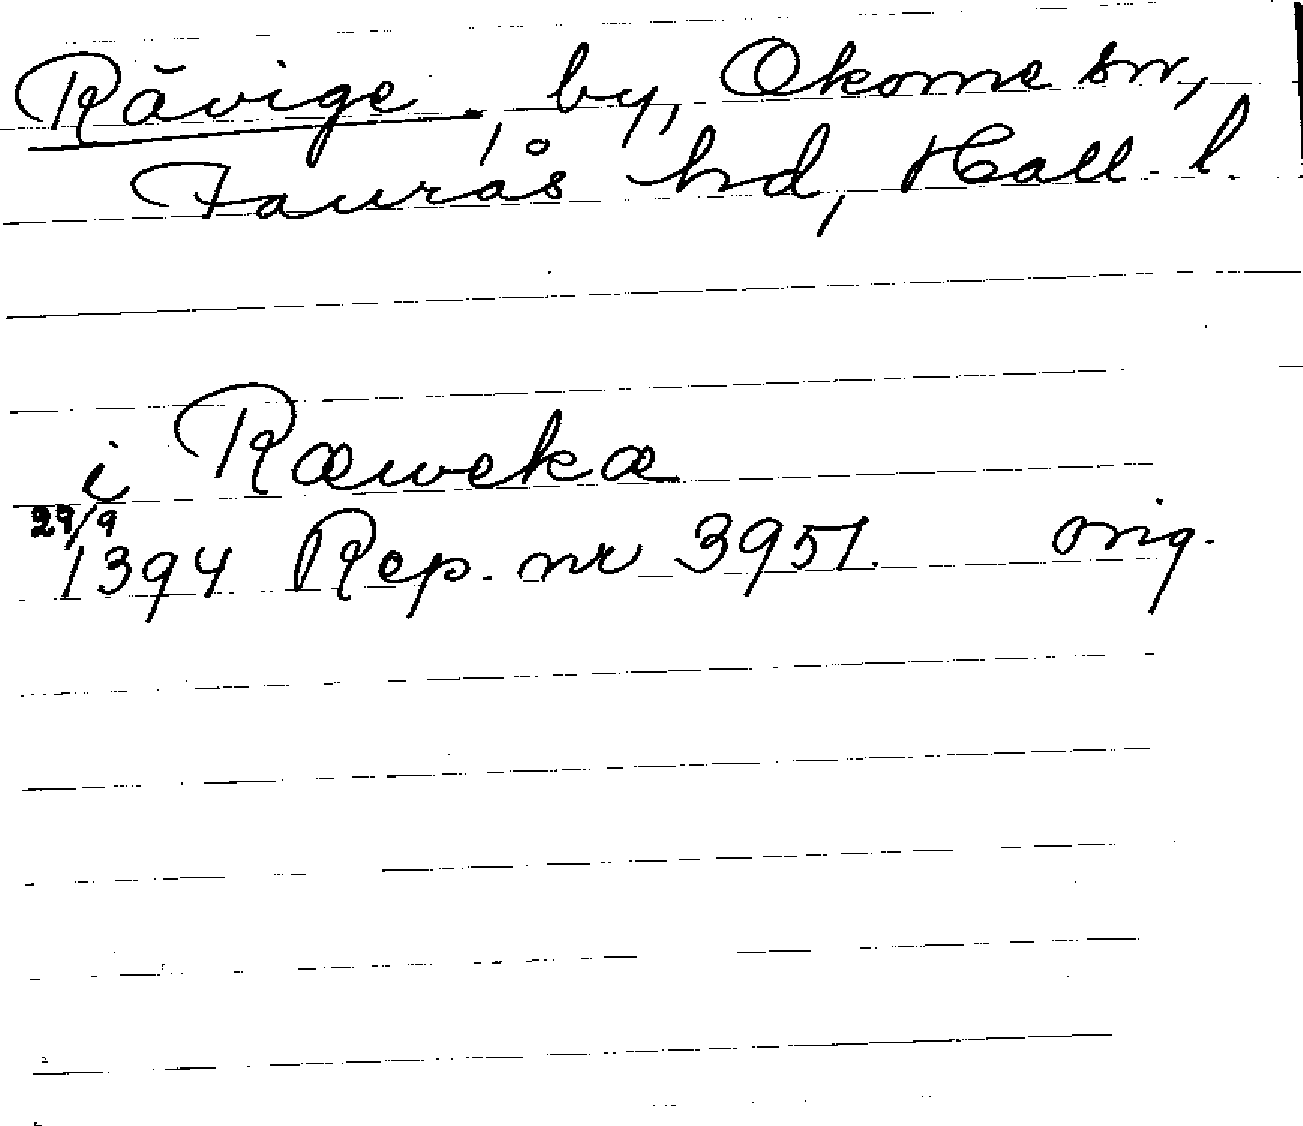 Rävige, by, Okome sn,
Faurås hd, Hall. l.
i Ræwekæ
29/9
1394 Rep. nr 3951. orig.